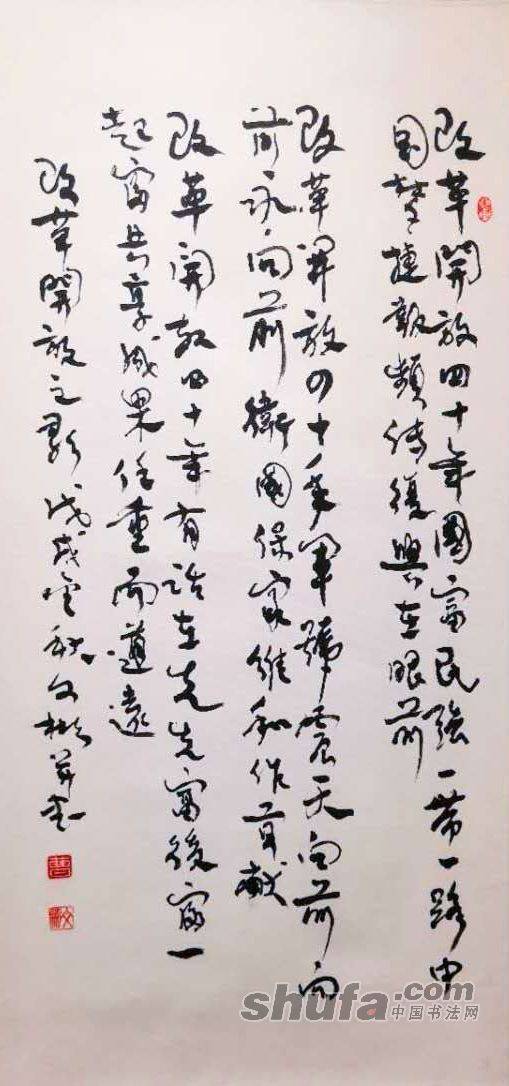 改革開放四十年國富民強一帶一路中
国梦捷報頻传復興在眼前
改革開放四十年軍號震天向前向
前永向前衛國保家維和作貢獻
改革開放四十年有話在先先富後富一
起富共享成果任重而道遠
改革開放之歌戊戌秋文彬并書
shufa.com
中国书法网